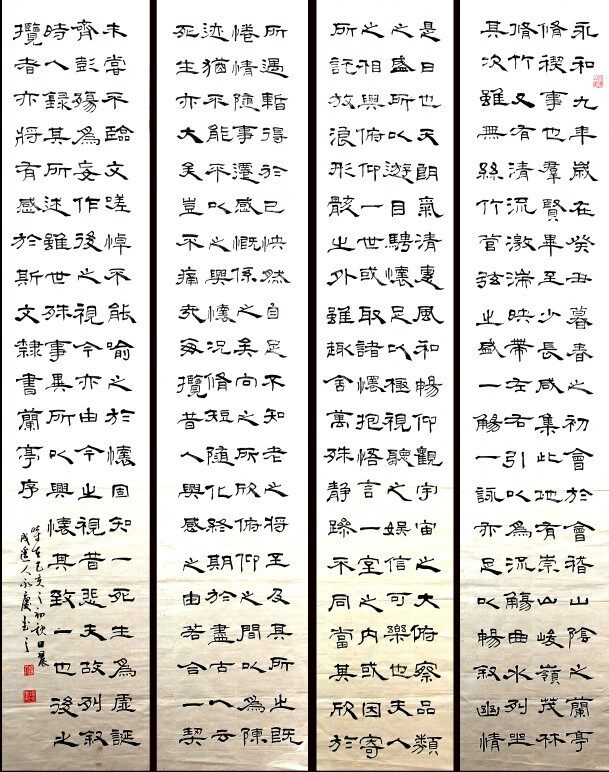 永和九年歲在癸丑暮春之初會於會稽山陰之蘭亭
脩禊事也羣賢畢至少長咸集此地有崇山峻嶺茂林
脩竹又有清流激湍映帶左右引以為流觴曲水列坐
其次雖無絲竹管弦之盛一觴一詠亦足以暢敘幽情
是日也天朗氣清惠風和暢仰觀宇宙之大俯察品類
之盛所以遊目騁懷足以極視聽之娛信可樂也夫人
之相與俯仰一世或取諸懷抱悟言一室之內或因寄
所託放浪形骸之外雖趣舍萬殊靜躁不同當其欣於
所遇暫得於己怏然自足不知老之將至及其所之既
惓情隨事遷感慨係之矣向之所欣俯仰之間以為陳
迹猶不能不以之興懷況脩短隨化終期於盡古人云
死生亦大矣豈不痛哉每攬昔人興感之由若合一契
未嘗不臨文嗟悼不能喻之於懷固知一死生為虛誕
齊彭殤為妄作後之視今亦由今之視昔悲夫故列敘
時人錄其所述雖世殊事異所以興懷其致一也後之
攬者亦將有感於斯文隸書蘭亭序
在己亥之初秋日晨
人永慶書